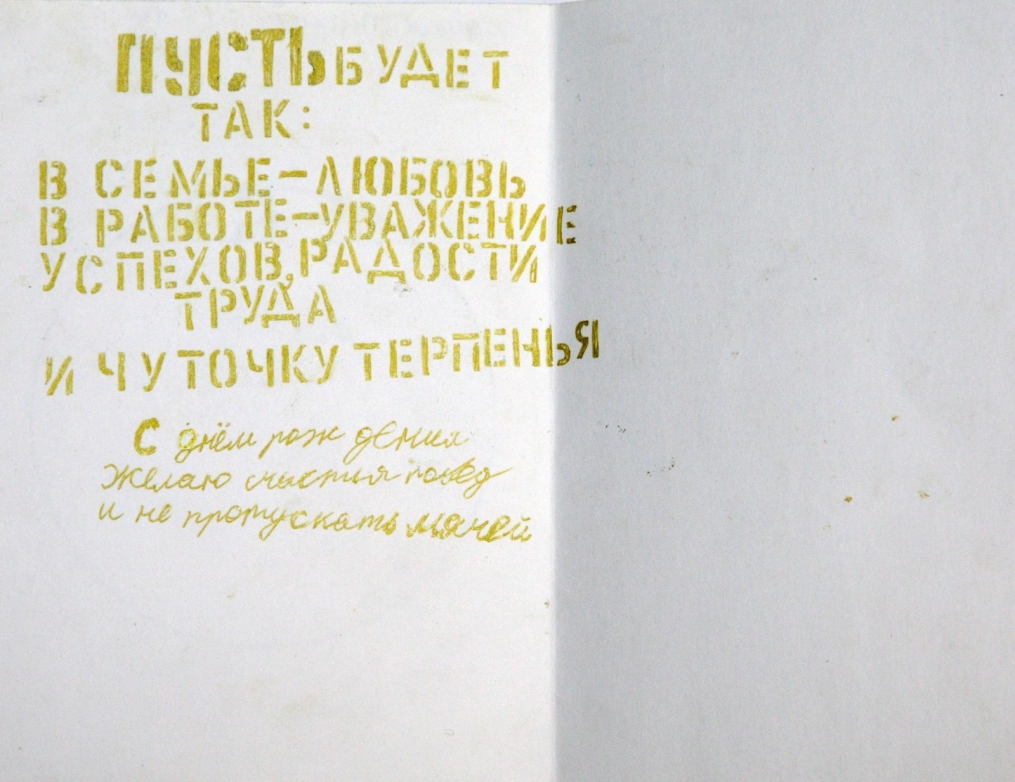 ПУСТЬ БУДЕТ
ТАК:
В СЕМЬЕ-ЛЮБОВЬ
В РАБОТЕ-УВАЖЕНИЕ
УСПЕХОВ, РАДОСТИ
ТРУДА
И ЧУТОЧКУ ТЕРПЕНЬЯ
С днём рождения
Желаю счастья побед
и не пропускать мячей